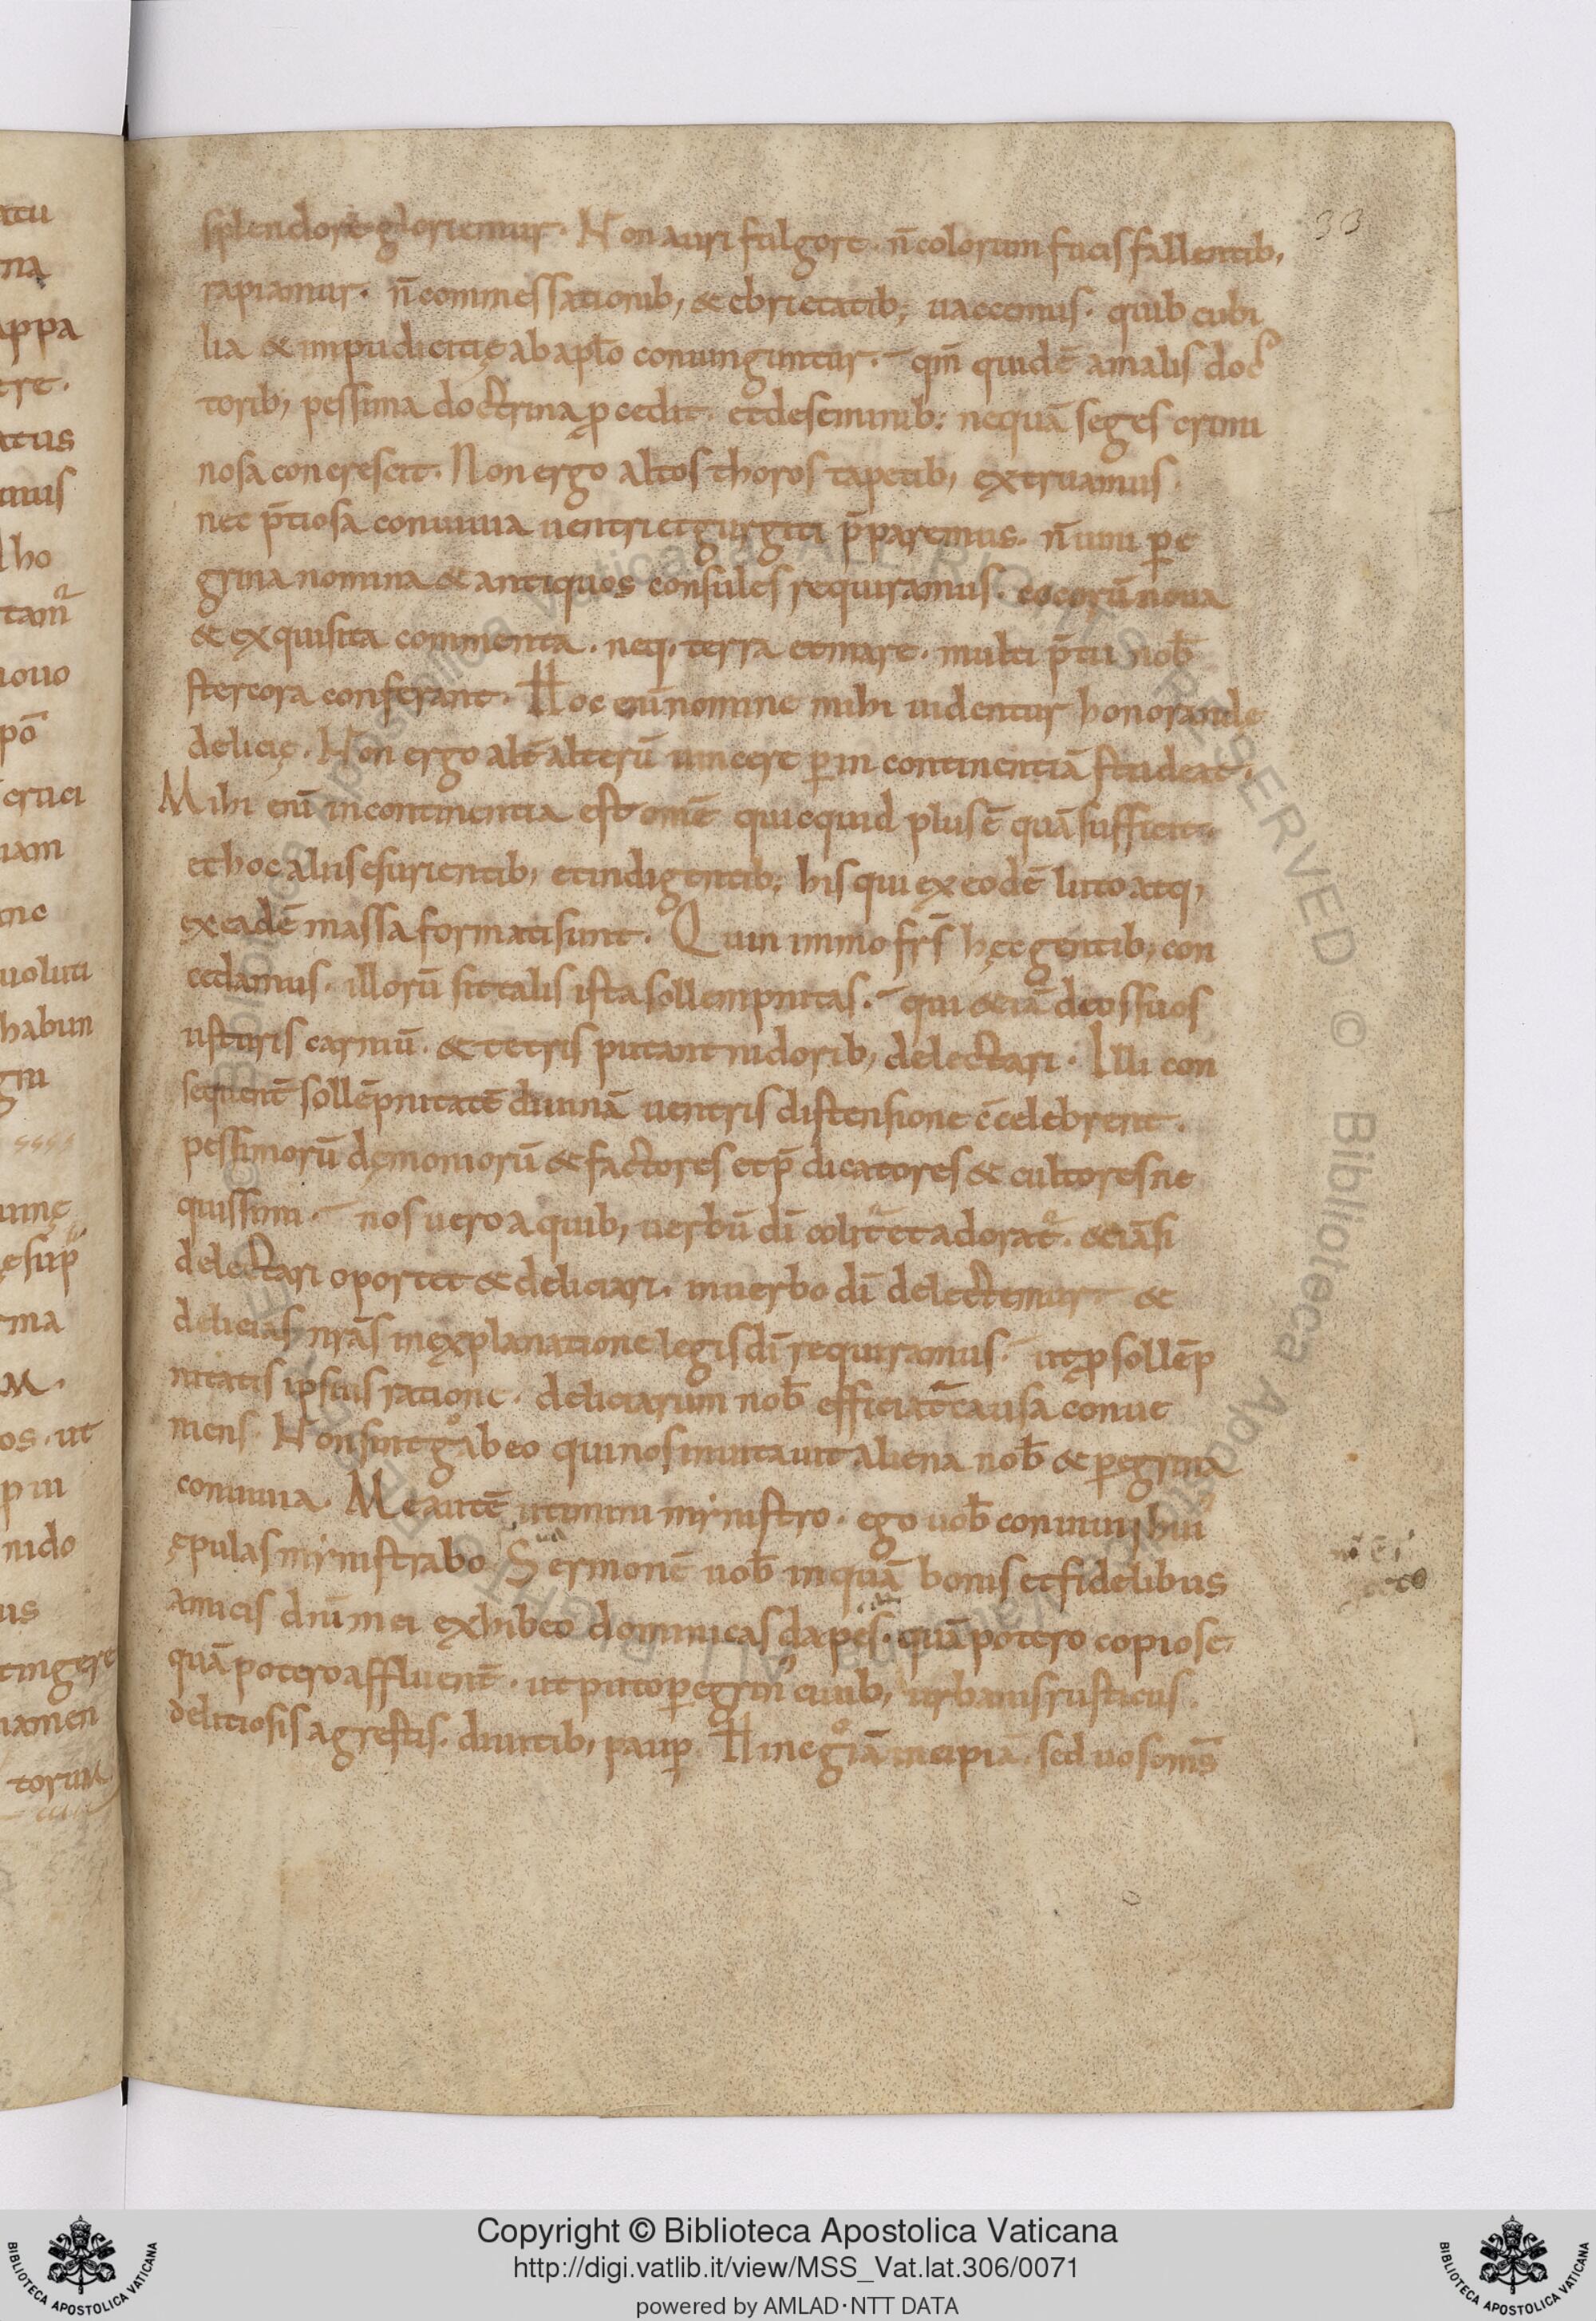 33
splendore gloriemur. Non auri fulgore. n̄ colorum fucis fallentib;
rapiamur. n̄ commessationib; & ebrietatib; uaccemus. quib cubi
lia & impudicitię ab apl̄o coniunguntur. qm̄ quidē a malis doc
torib; pessima doctrina p̱cedit. et de seminib: nequā seges crimi
nosa concrescit. Non ergo altos thoros tapetib; extruamus.
nec p̄tiosa conuiuia uentri et gurgiti p̄paremus. n̄ uini pere
grina nomina & antiquos consules requiramus. cocorū noua
& exquisita commenta. neq; terra et mare. multi p̄tii nob̄
stercora conferant. Hoc enī nomine mihi uidentur honorande
delicię. Non ergo alt̄ alterū uincere p̱ incontinentiā studeat.
Mihi enī incontinentia est omē quicquid plus ē quā sufficit
et hoc aliis esurientib; et indigentib; his qui ex eodē luto atq;
ex eadē massa formati sunt. Quin immo frs̄ hęc gentib; con
cedamus. illorū sit talis ista sollempnitas. qui &iā deos suos
usturis carniū. & tetris putant nidorib; delectari. Illi con
sequent̄ sollēpnitatē diuinā uentris distensione ccelebrent.
pessimorū dęmoniorū & factores et p̄dicatores & cultores ne
quissimi. nos uero a quib; uerbū dī colit̄ et adorat̄. &iā si
delectari oportet & deliciari. in uerbo dī delectemur &
delicias nrās in explanatione legis dī requiramus. ut p̱ sollēp
nitatis ipsius ratione. deliciarum nob̄ efficiat̄ causa conue
niens. Non sint g° ab eo qui nos inuitauit aliena nob̄ & peregrina
conuiuia. Me autē utimini ministro. ego uob̄ conuiuii hui᾽
ępulas ministrabo. Sermonē uob̄ inquā bonis et fidelibus
amicis dnī mei exhibeo dominicas dapes. quā potero copiose.
quā potero affluent̄. ut puto peregrin᾽ ciuib; urbanis rusticus.
delitiosis agrestis. diuitib; paup̱. Hinc g° iā incipiā. sed uos oms̄
Copyright © Biblioteca Apostolica Vaticana
http://digi.vatlib.it/view/MSS_Vat.lat.306/0071
powered by AMLAD·NTT DATA